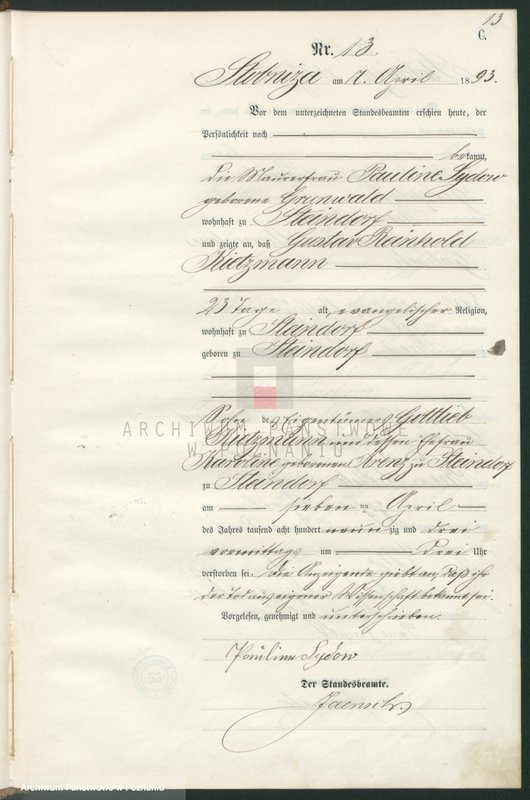 13
C.
Nr. 13.
am 7. April 1893.
Vor dem unterzeichneten Standesbeamten erschien heute, der
Persönlichkeit nach
bekannt,
die Maurerfrau Pauline Sydow
geborene Grunwald
wohnhaft zu Steindorf
und zeigte an, daß Gustav Reinhold
Kietzmann
23 Tage alt, evangelischer Religion,
wohnhaft zu Steindorf
geboren zu Steindorf
Sohn des Eigentümers Gottlieb
Kietzmann und dessen Ehefrau
Karoline geborenen Krenz zu Steindorf
zu Steindorf
am sieben ten April
des Jahres tausend acht hundert neun zig und drei
vormittags um drei Uhr
verstorben sei. Die Anzeigende giebt an, daß ihr
der Tod aus eigener Wissenschaft bekannt sei.
Vorgelesen, genehmigt und unterschrieben.
Pauline Sydow
Der Standesbeamte.
ARCHIWUM PAŃSTWOWE
W POZNANIU
53
Archiwum Państwowe w Poznaniu